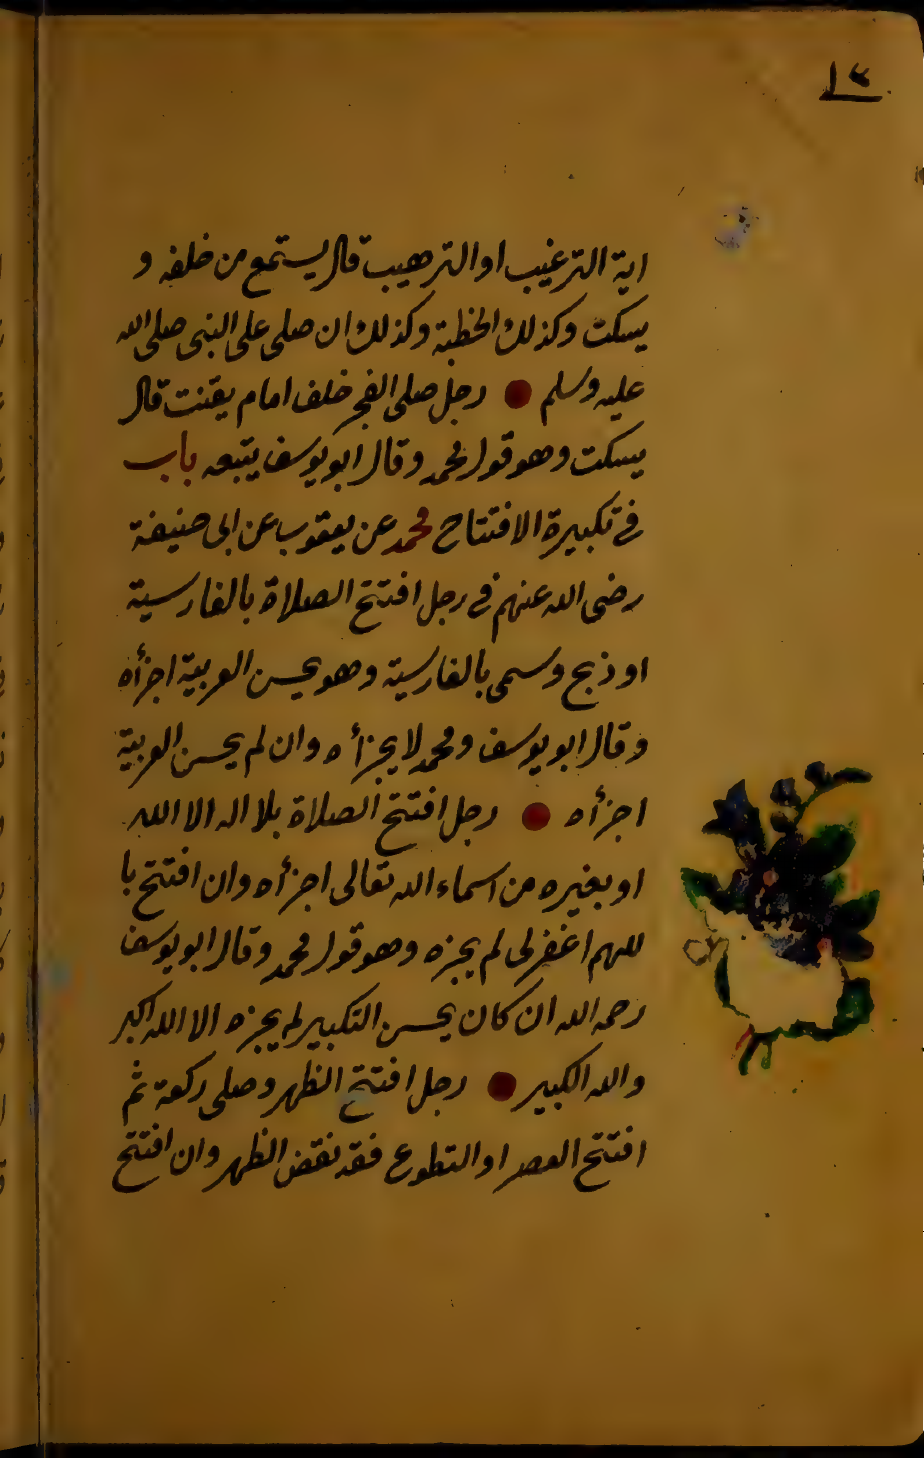 ١٤
اية الترغيب او الترهيب قال يستمع من خلفه و
يسكت وكذلك الخطبة وكذلك ان صلى على النبى صلى الله
عليه وسلم ● رجل صلى الفجر خلف امام يقنت قال
يسكت وهو قول محمد وقال ابو يوسف يتبعه باب
فى تكبيرة الافتتاح محمد عن يعقوب عن ابى حنيفة
رضى الله عنهم فى رجل افتتح الصلاة بالفارسية
او ذبح وسمى بالفارسية وهو يحسن العربية اجزأه
وقال ابو يوسف ومحمد لا يجزأه وان لم يحسن العربية
اجزأه ● رجل افتتح الصلاة بلا اله الا الله
او بغيره من اسماء الله تعالى اجزأه وان افتتح با
للهم اغفر لى لم يجزه وهو قول محمد وقال ابو يوسف
رحمه الله ان كان يحسن التكبير لم يجزه الا الله اكبر
والله الكبير ● رجل افتتح الظهر وصلى ركعة ثم
افتتح العصر او التطوع فقد نقض الظهر وان افتتح